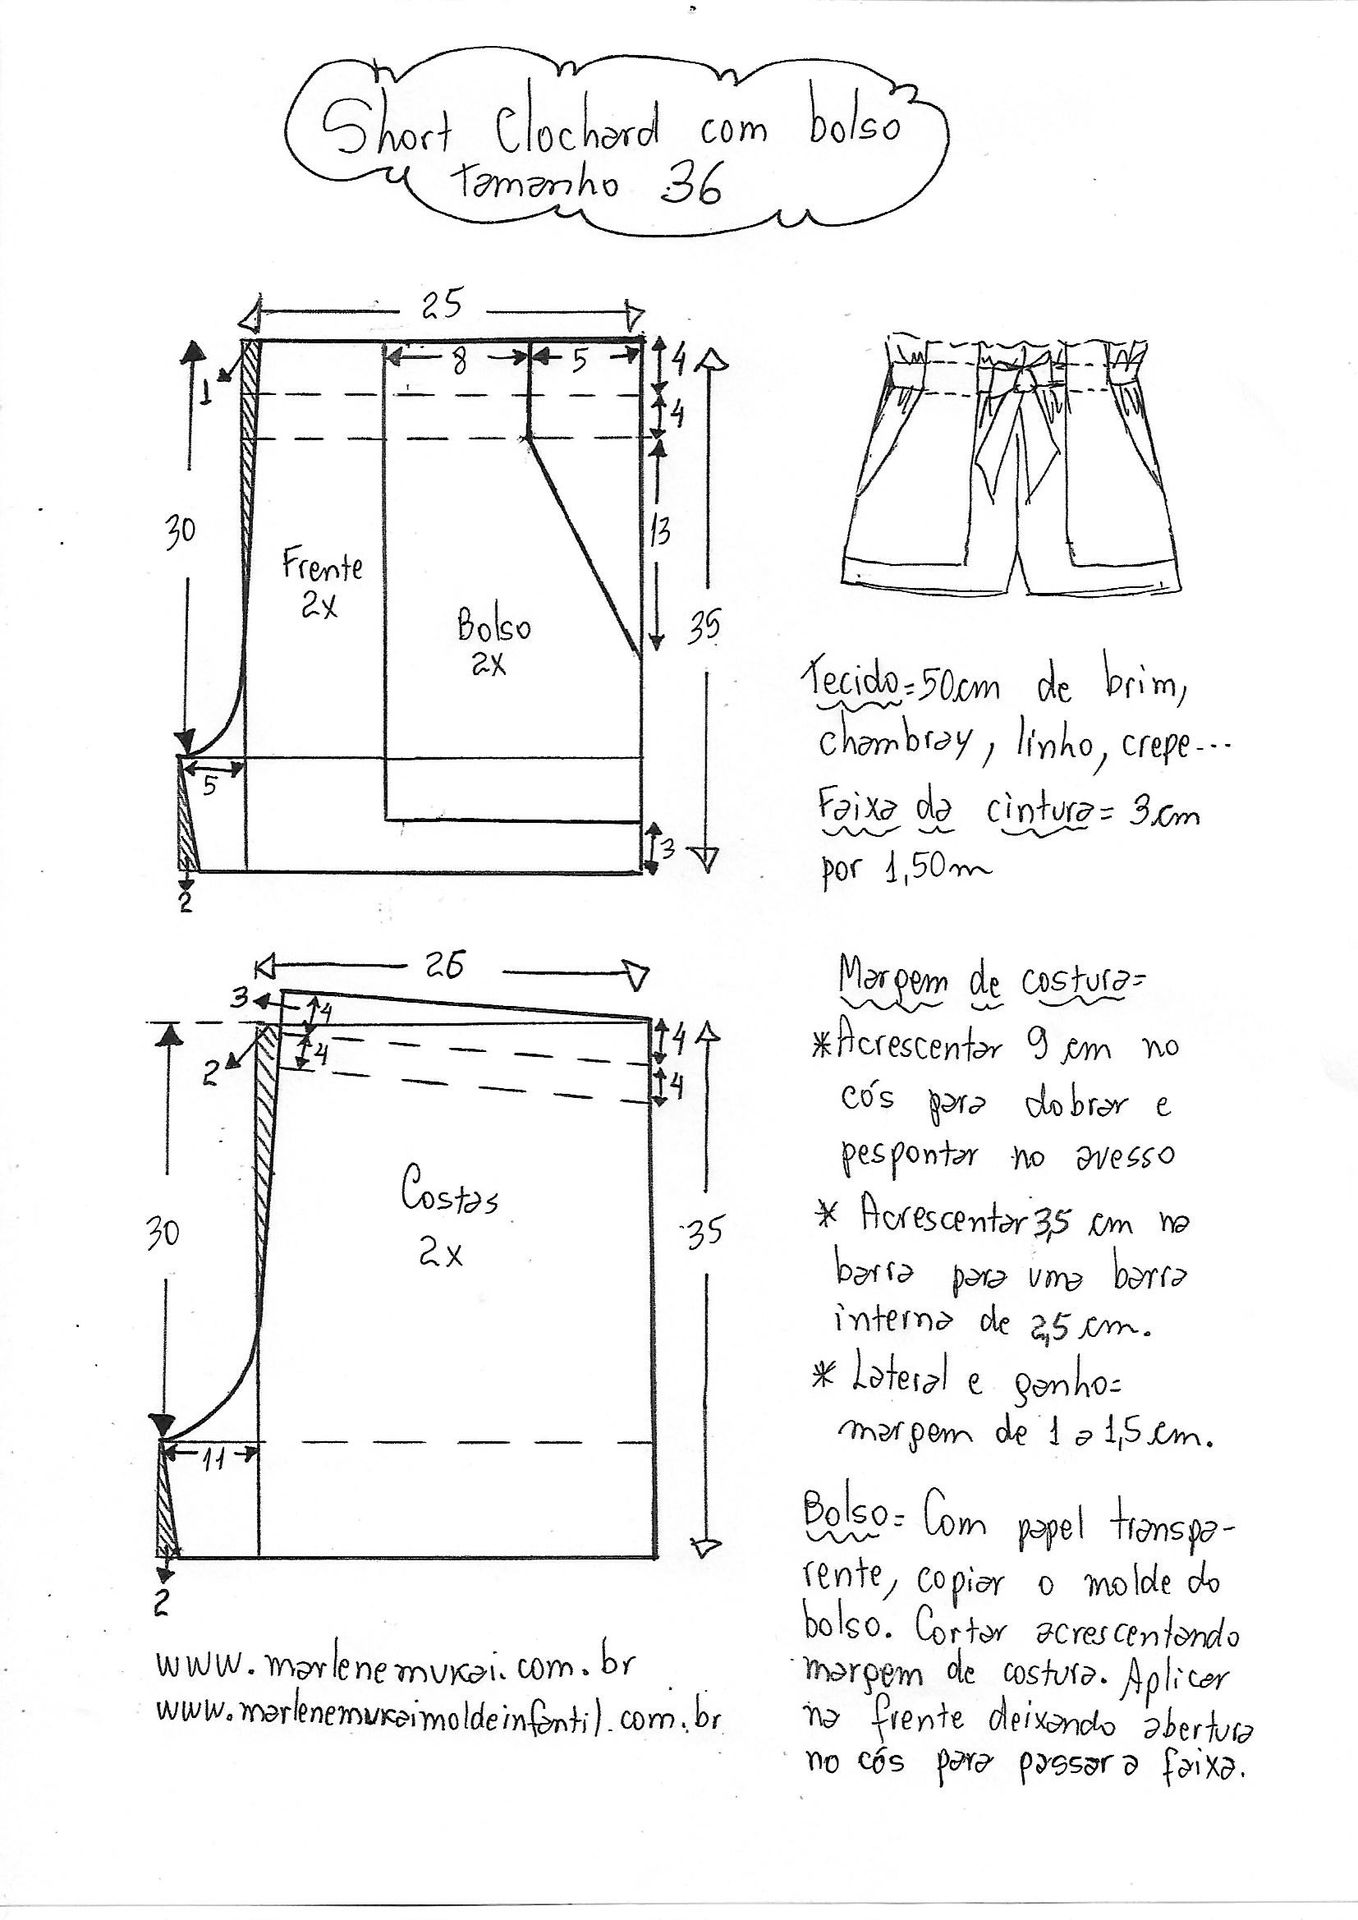 Short Clochard com bolso
tamanho 36
25
8
5
4
1
4
30
13
Frente
2x
Bolso
2x
35
5
3
2
Tecido=50cm de brim,
chambray, linho, crepe...
Faixa da cintura= 3cm
por 1,50m
26
3
4
4
2
4
4
Costas
2x
30
35
11
2
Margem de costura=
*Acrescentar 9 cm no
cós para dobrar e
pespontar no avesso
* Acrescentar 3,5 cm na
barra para uma barra
interna de 2,5 cm.
* Lateral e ganho=
margem de 1 a 1,5 cm.
Bolso= Com papel transpa-
rente, copiar o molde do
bolso. Cortar acrescentando
margem de costura. Aplicar
na frente deixando abertura
no cós para passar a faixa.
www.marlenemukai.com.br
www.marlenemukaimoldeinfantil.com.br